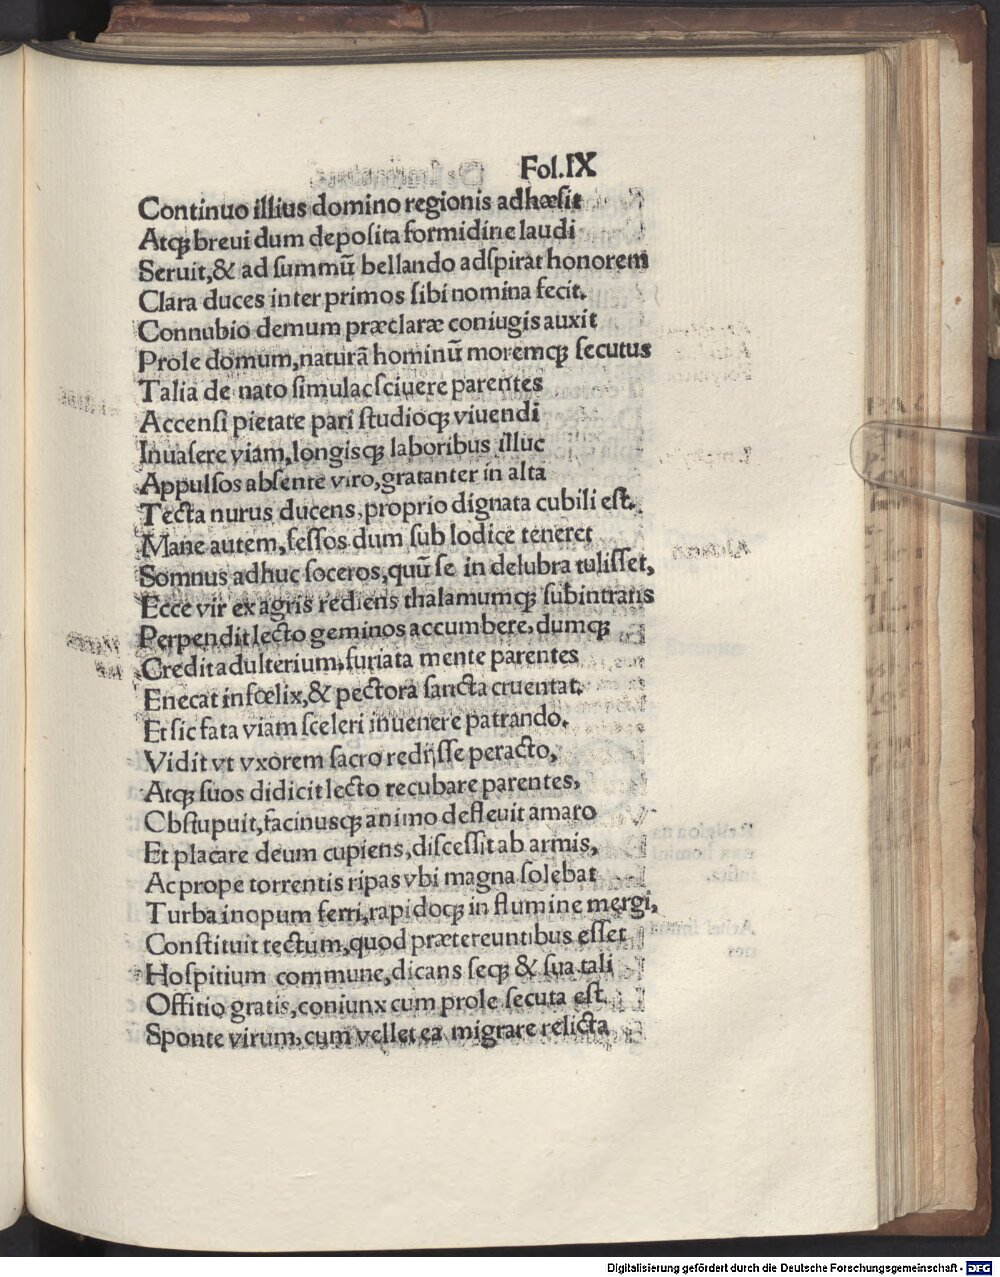 Fol.IX
Continuo illius domino regionis adhæsit
Atqꝫ breui dum deposita formidine laudi
Seruit,& ad summū bellando adspirat honorem
Clara duces inter primos sibi nomina fecit.
Connubio demum præclaræ coniugis auxit
Prole domum,naturā hominū moremqꝫ secutus
Talia de nato simulac sciuere parentes
Accensi pietate pari studioqꝫ viuendi
Inuasere viam,longisqꝫ laboribus illuc
Appulsos absente viro,gratanter in alta
Tecta nurus ducens,proprio dignata cubili est.
Mane autem,fessos dum sub lodice teneret
Somnus adhuc soceros,quū se in delubra tulisset,
Ecce vir ex agris rediens thalamumqꝫ subintrans
Perpendit lecto geminos accumbere,dumqꝫ
Credit adulterium,furiata mente parentes
Enecat infœlix,& pectora sancta cruentat.
Et sic fata viam sceleri inuenere patrando.
Vidit vt vxorem sacro redijsse peracto,
Atqꝫ suos didicit lecto recubare parentes,
Obstupuit,facinusqꝫ animo defleuit amaro
Et placare deum cupiens,discessit ab armis,
Ac prope torrentis ripas vbi magna solebat
Turba inopum ferri,rapidoqꝫ in flumine mergi,
Constituit tectum,quod prætereuntibus esset
Hospitium commune,dicans seqꝫ & sua tali
Offitio gratis,coniunx cum prole secuta est
Sponte virum,cum vellet ea migrare relicta
Digitalisierung gefördert durch die Deutsche Forschungsgemeinschaft - DFG